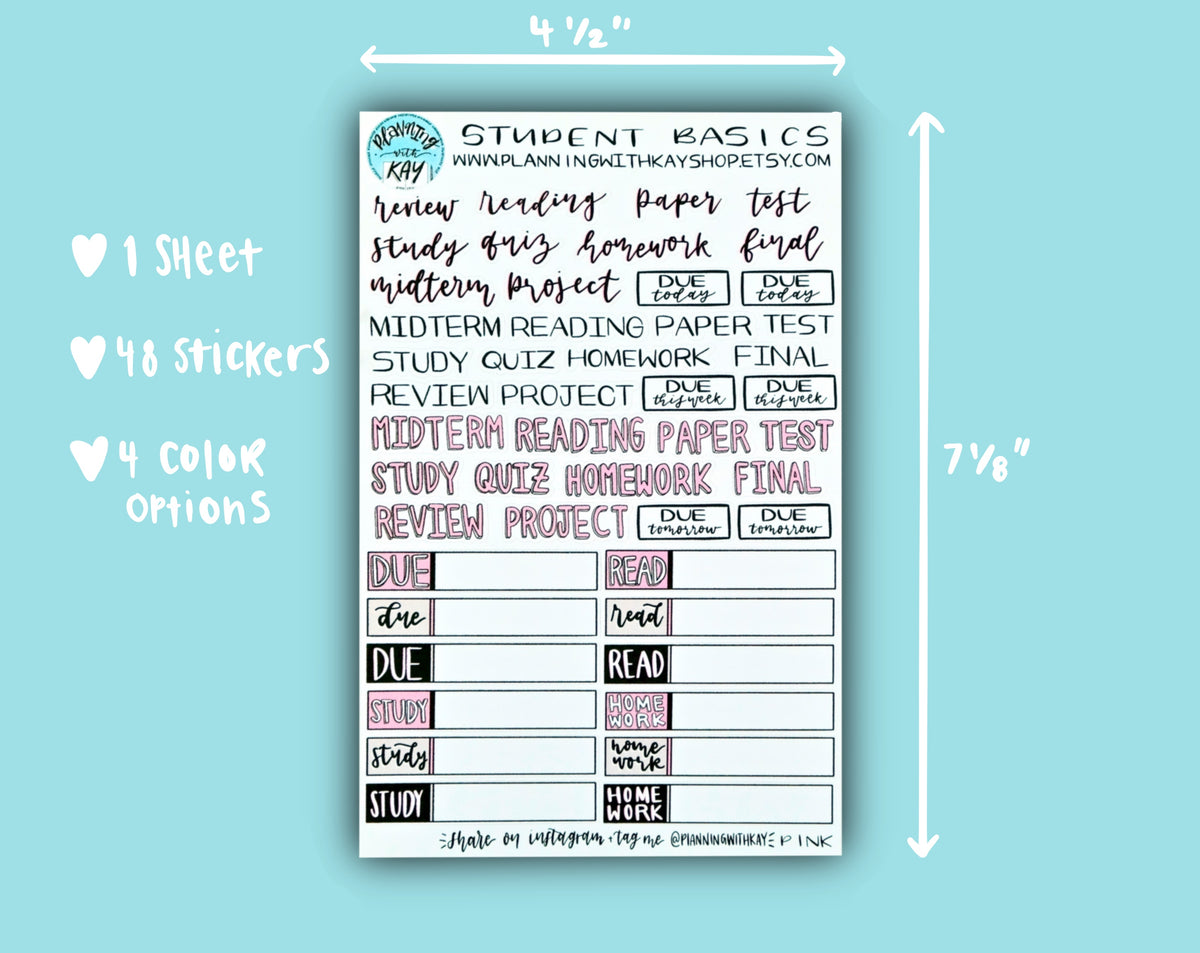 4 1/2"
PLANNING
with
KAY
STUDENT BASICS
WWW.PLANNINGWITHKAYSHOP.ETSY.COM
review reading paper test
study quiz homework final
midterm project DUE today DUE today
MIDTERM READING PAPER TEST
STUDY QUIZ HOMEWORK FINAL
REVIEW PROJECT DUE this week DUE this week
MIDTERM READING PAPER TEST
STUDY QUIZ HOMEWORK FINAL
REVIEW PROJECT DUE tomorrow DUE tomorrow
DUE READ
due read
DUE READ
STUDY HOME WORK
study home work
STUDY HOME WORK
share on instagram + tag me @PLANNINGWITHKAY PINK
1 SHEET
48 STICKERS
4 COLOR
OPTIONS
7 1/8"